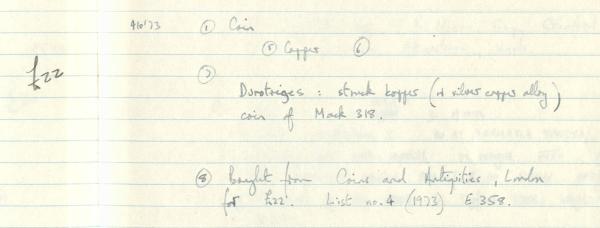 416'73 ① Coin
⑤ Copper ⑥
£22
⑦
Durotriges : struck copper (or silver copper alloy)
coin of Mack 318.
⑧ Bought from Coins and Antiquities, London
for £22. List no. 4 (1973) E 358.